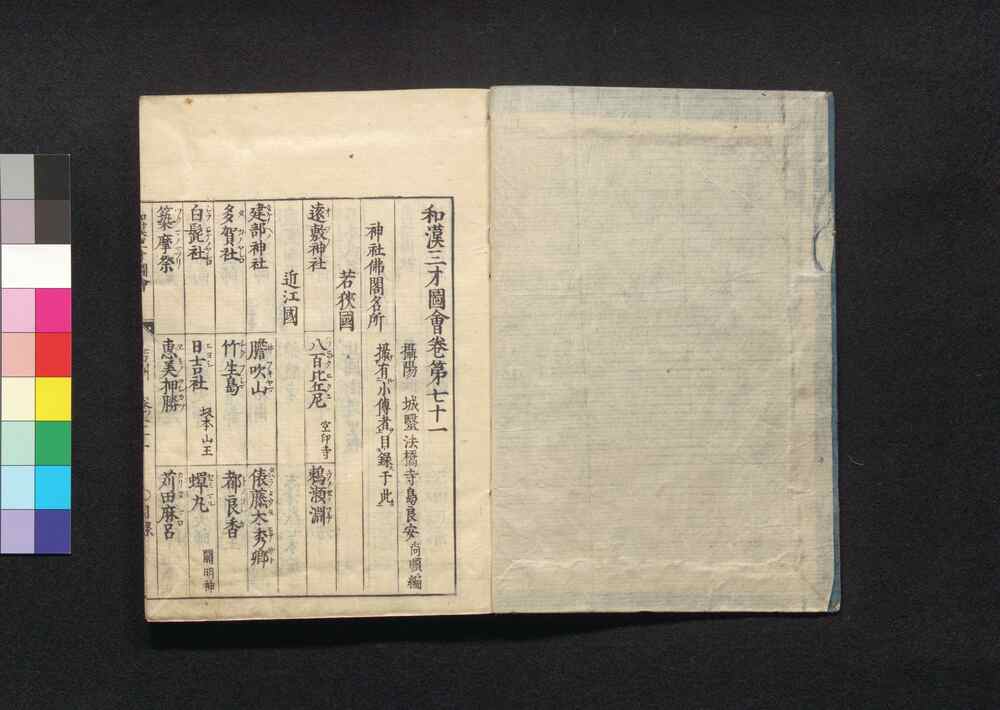 和漢三才圖會卷第七十一
攝陽 城醫法橋寺島良安尚順編
神社佛閣名所
攝有小傳者目錄于此
若狹國
遠敷神社 八百比丘尼 空印寺 鵜瀬淵
近江國
建部神社 膽吹山 俵藤太秀郷
多賀社 竹生島 都良香
白髭社 日吉社 坂本山王 蟬丸 關明神
築摩祭 惠美押勝 苅田麻呂